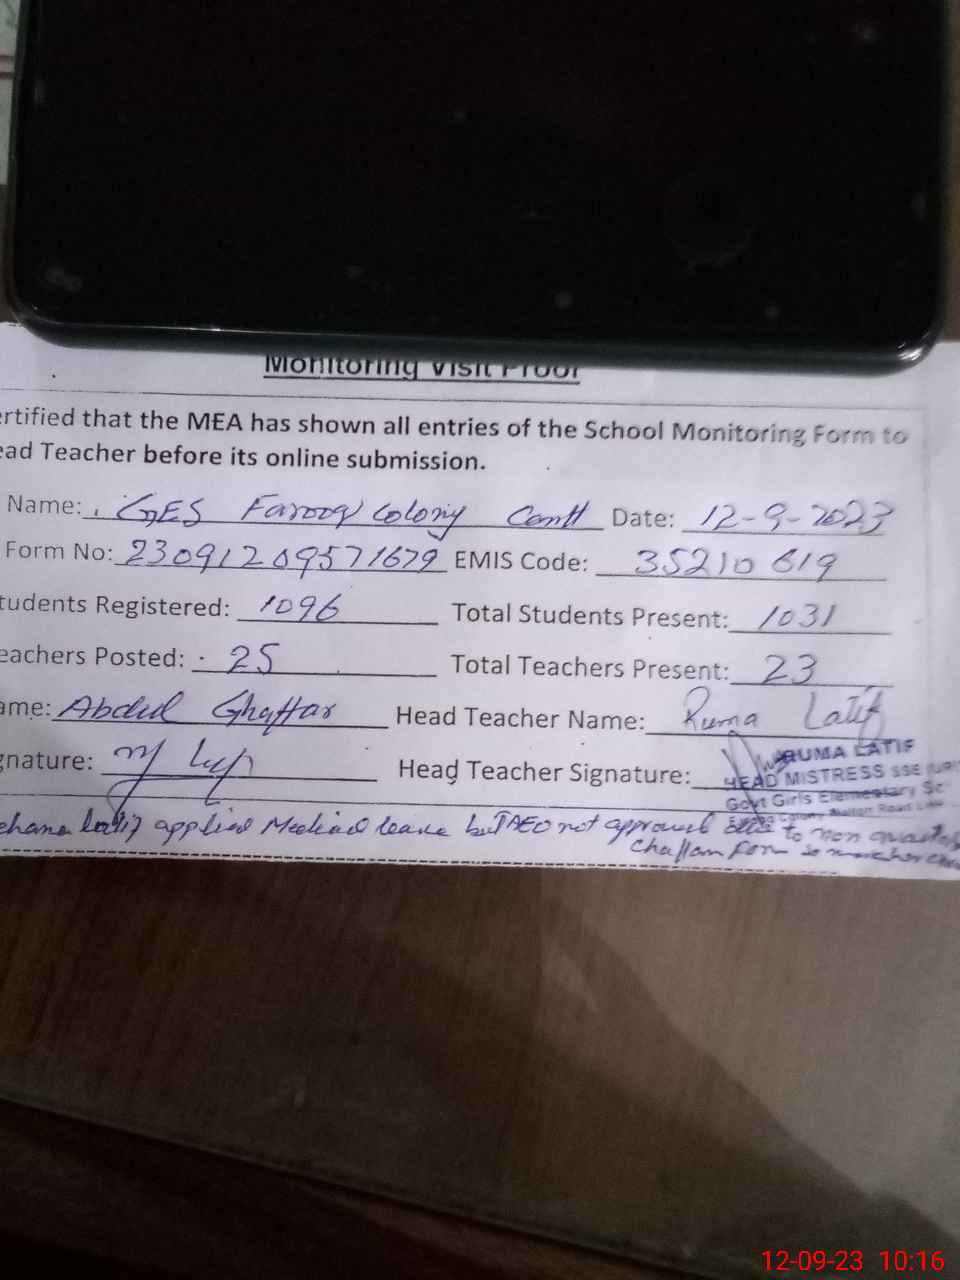 Monitoring Visit Proof
ertified that the MEA has shown all entries of the School Monitoring Form to
ead Teacher before its online submission.
Name: GGES Farooq Colony Cantt Date: 12-9-2023
Form No: 23091209571679 EMIS Code: 35210619
tudents Registered: 1096 Total Students Present: 1031
eachers Posted: 25 Total Teachers Present: 23
ame: Abdul Ghaffar Head Teacher Name: Ruma Latif
gnature: Head Teacher Signature:
RUMA LATIF
HEAD MISTRESS SSE
Govt Girls Elementary Sc
Colony Walton Road
applied Medical leave but AEO not approved to non
challan form
12-09-23 10:16